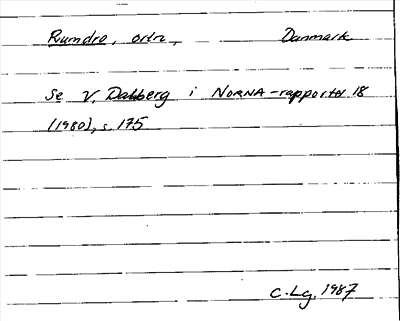 Rumdre, ortn, Danmark
Se V. Dalberg i NORNA-rapporter 18
(1980), s. 175
C-Lg. 1987